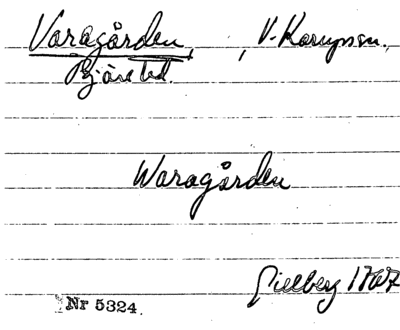 Varagården, V. Karupsn.,
Bjärsted.
Waragården
Gillberg 1767
Nr 5324.